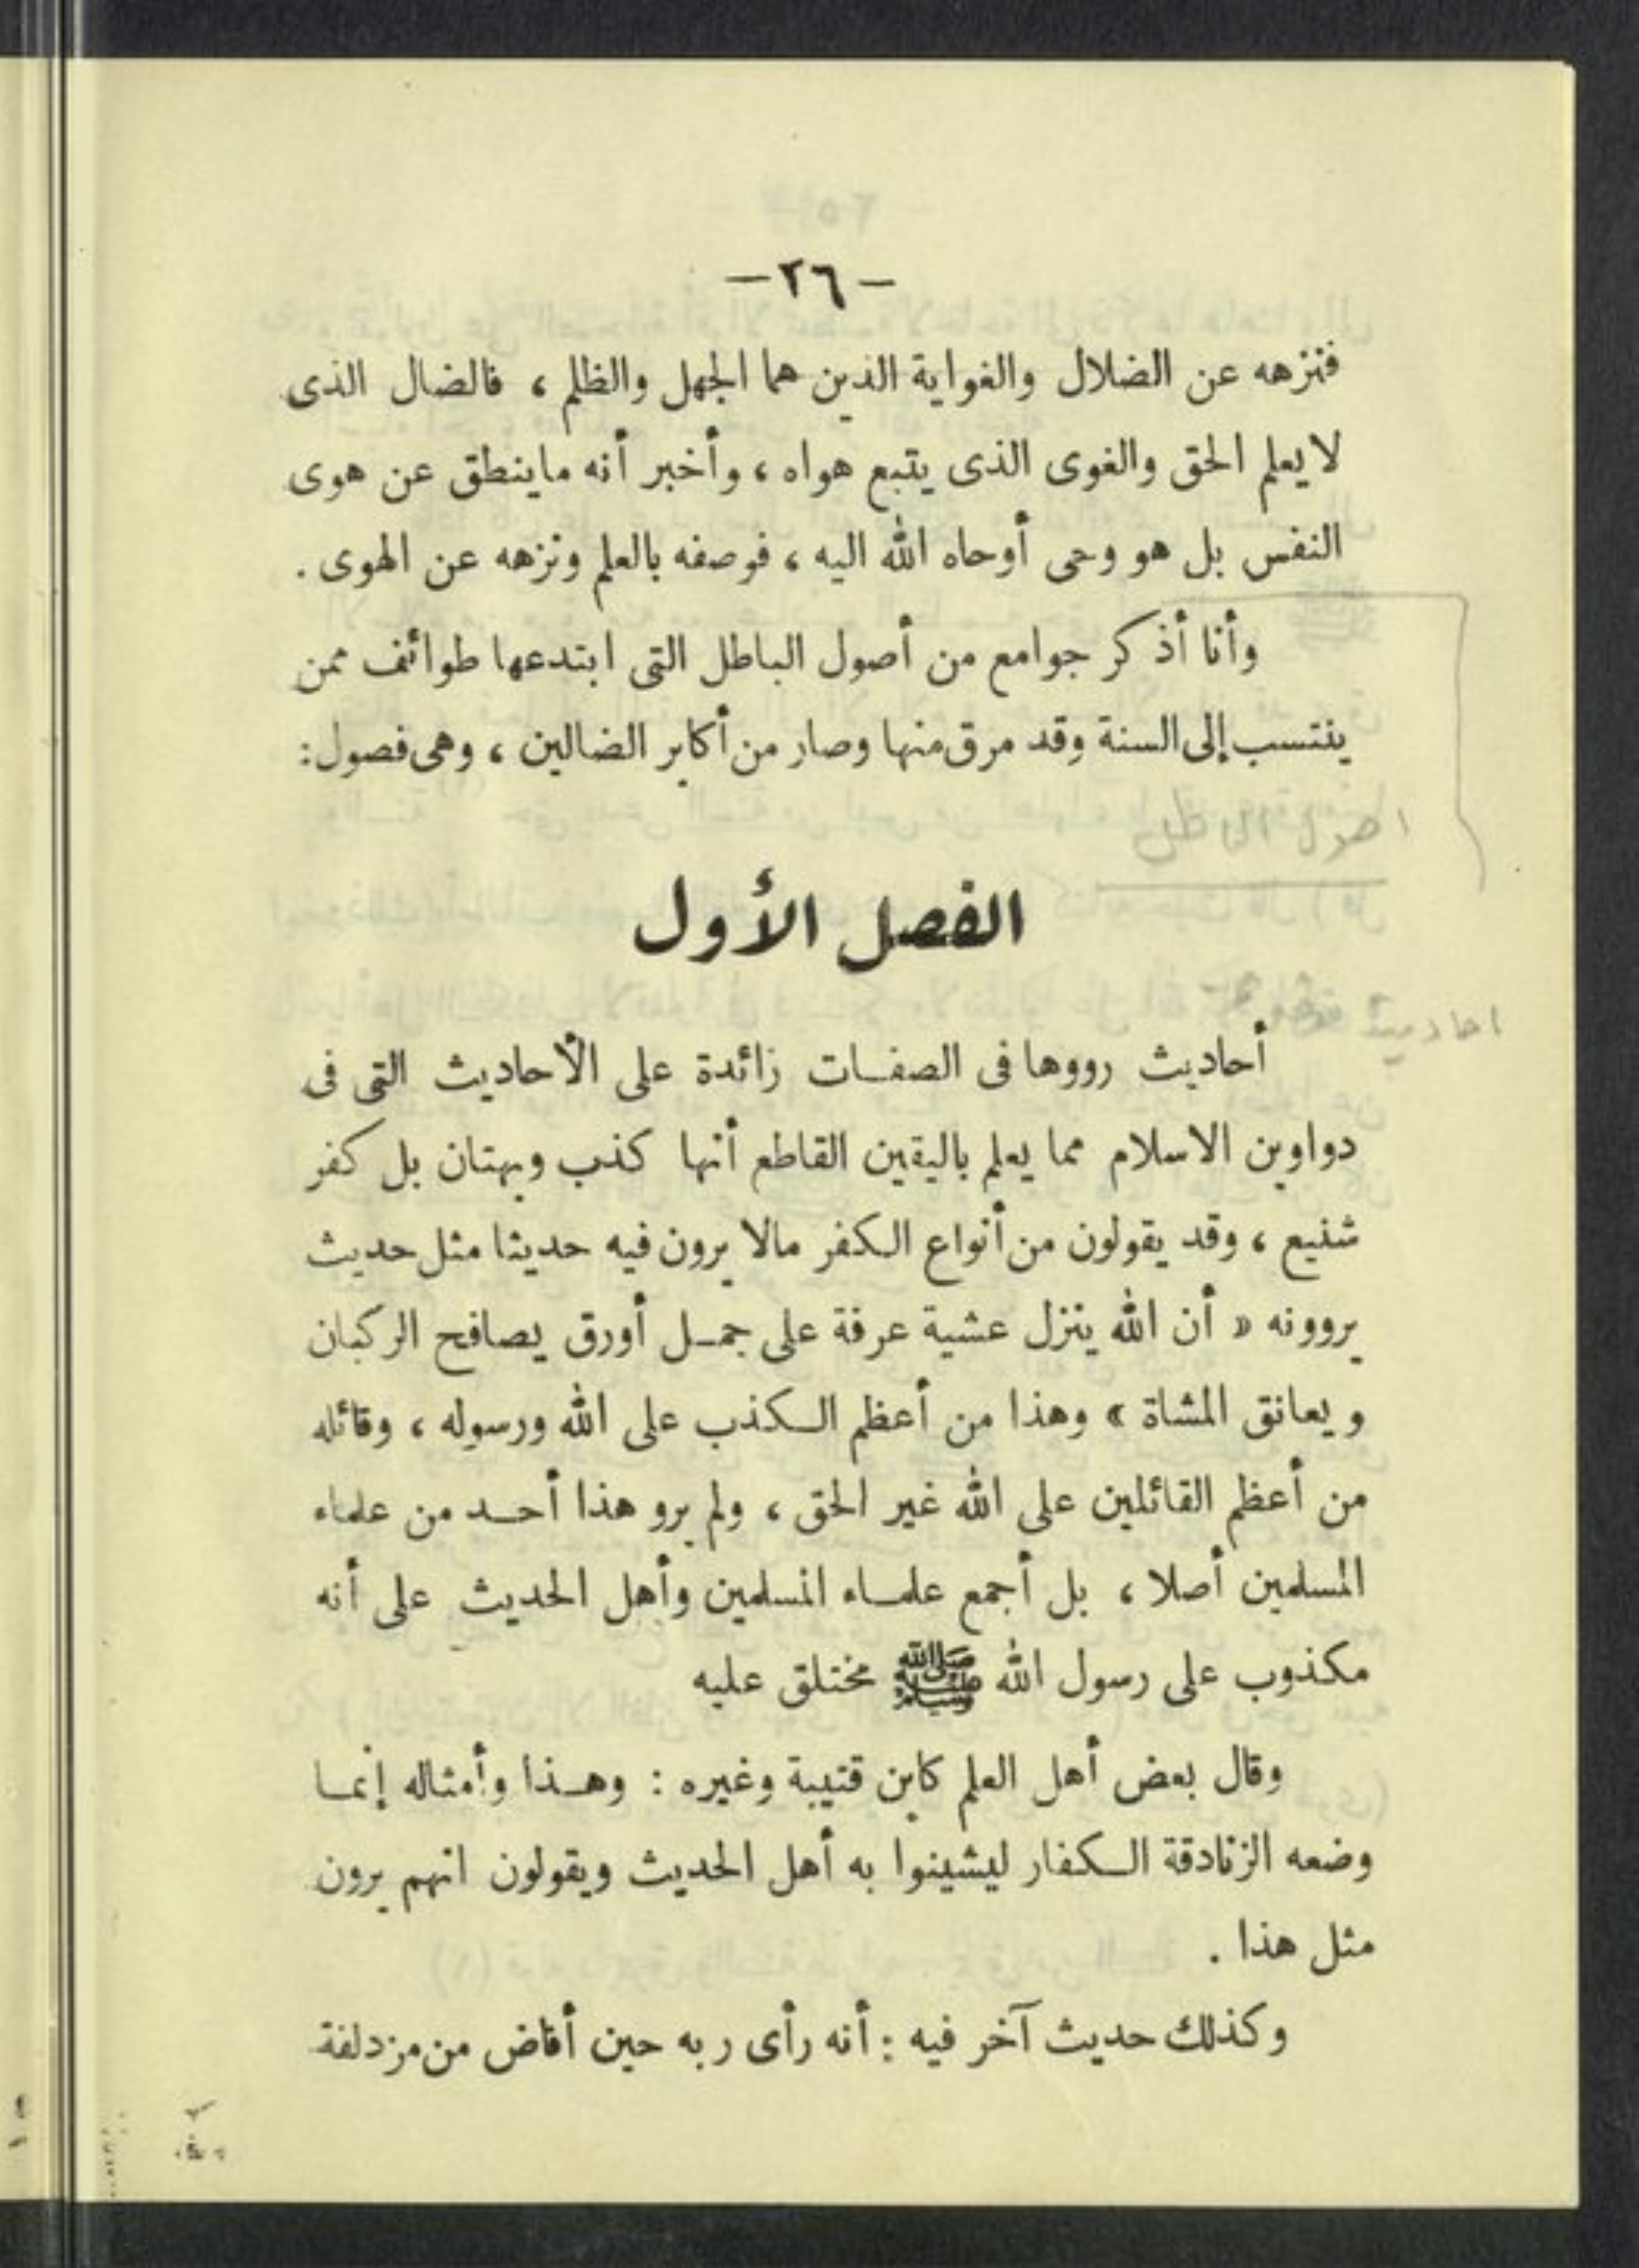 -٢٦-
فنزهه عن الضلال والغواية الذين هما الجهل والظلم ، فالضال الذى
لا يعلم الحق والغوى الذى يتبع هواه ، وأخبر أنه ماينطق عن هوى
النفس بل هو وحى أوحاه الله اليه ، فوصفه بالعلم ونزهه عن الهوى .
وأنا أذكر جوامع من أصول الباطل التى ابتدعها طوائف ممن
ينتسب إلى السنة وقد مرق منها وصار من أكابر الضالين ، وهى فصول :
اصول الباطل
الفصل الأول
احاديث
أحاديث رووها فى الصفات زائدة على الأحاديث التى فى
دواوين الاسلام مما يعلم باليقين القاطع أنها كذب وبهتان بل كفر
شنيع ، وقد يقولون من أنواع الكفر مالا يرون فيه حديثا مثل حديث
يروونه « أن الله ينزل عشية عرفة على جمل أورق يصافح الركبان
ويعانق المشاة » وهذا من أعظم الكذب على الله ورسوله ، وقائله
من أعظم القائلين على الله غير الحق ، ولم يرو هذا أحد من علماء
المسلمين أصلا ، بل أجمع علماء المسلمين وأهل الحديث على أنه
مكذوب على رسول الله ﷺ مختلق عليه
وقال بعض أهل العلم كابن قتيبة وغيره : وهذا وأمثاله إنما
وضعه الزنادقة الكفار ليشينوا به أهل الحديث ويقولون انهم يرون
مثل هذا .
وكذلك حديث آخر فيه : أنه رأى ربه حين أفاض من مزدلفة